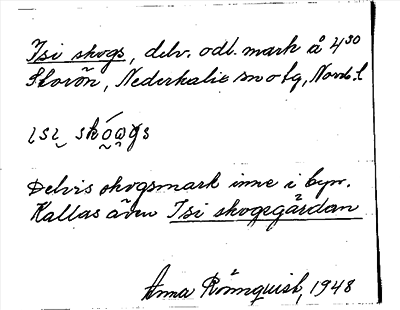 Isi skogs, delv. odl. mark å 4³⁰
Storön, Nederkalix sn o tg, Norrb. l
ɩsɩ skógs
Delvis skogsmark inne i byn.
Kallas även Isi skogsgårdan
Anna Rönnquist, 1948